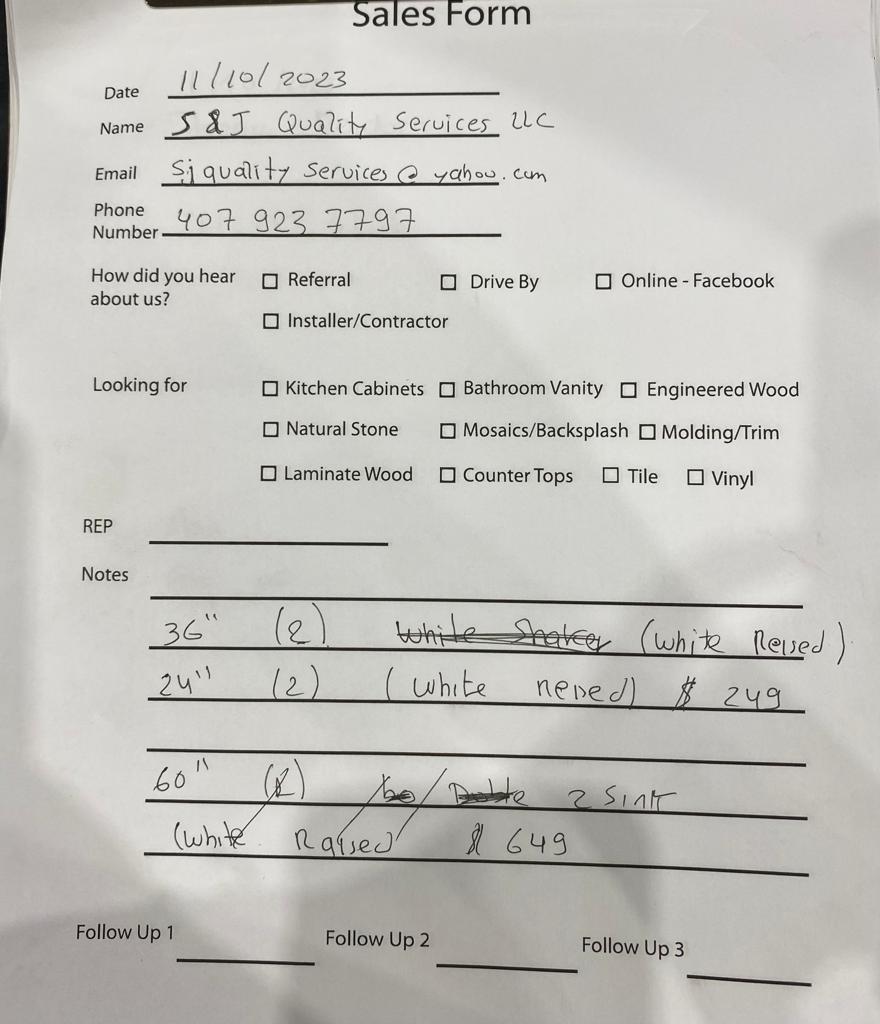 Sales Form
Date 11/10/2023
Name S & J Quality Services LLC
Email Sjquality Services@yahoo.com
Phone
Number 407 923 7797
How did you hear ☐ Referral ☐ Drive By ☐ Online - Facebook
about us?
☐ Installer/Contractor
Looking for ☐ Kitchen Cabinets ☐ Bathroom Vanity ☐ Engineered Wood
☐ Natural Stone ☐ Mosaics/Backsplash ☐ Molding/Trim
☐ Laminate Wood ☐ Counter Tops ☐ Tile ☐ Vinyl
REP
Notes
36" (2) White Shaker (white Reised)
24" (2) (white reised) $ 249
60" 2 Sink
(white Raised) $ 649
Follow Up 1 Follow Up 2 Follow Up 3